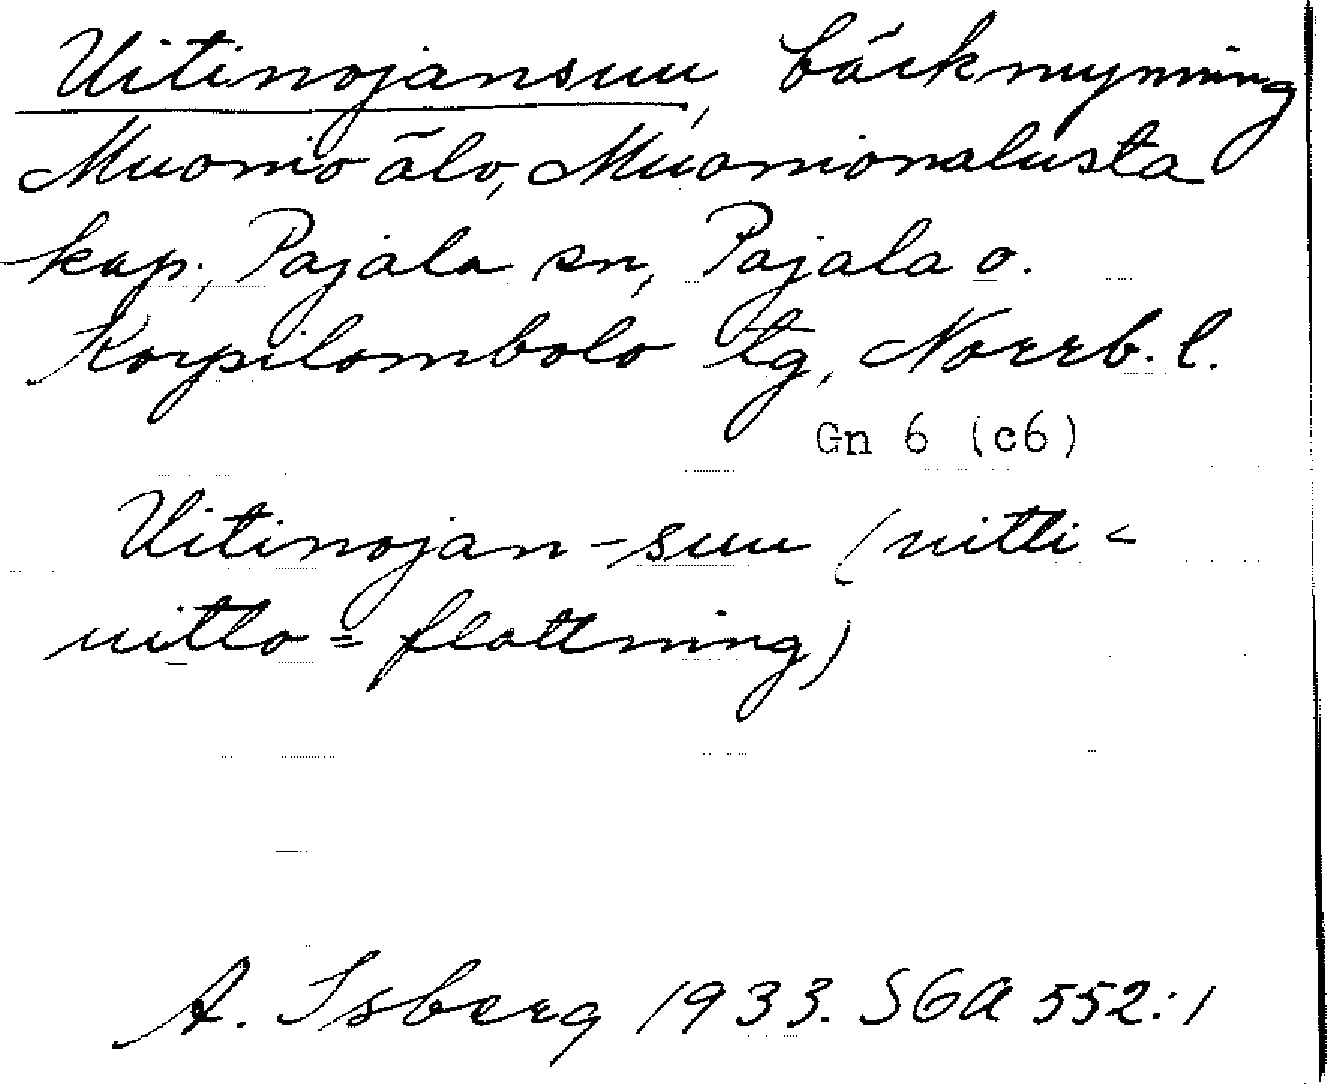 Uitinojansuu, bäckmynning
Muonio älv, Muonionalusta
kap., Pajala sn, Pajala o.
Korpilombolo tg, Norrb. l.
Gn 6 (c6)
Uitinojan-suu (uitti <
uitto = flottning)
A. Isberg 1933. SGA 552:1